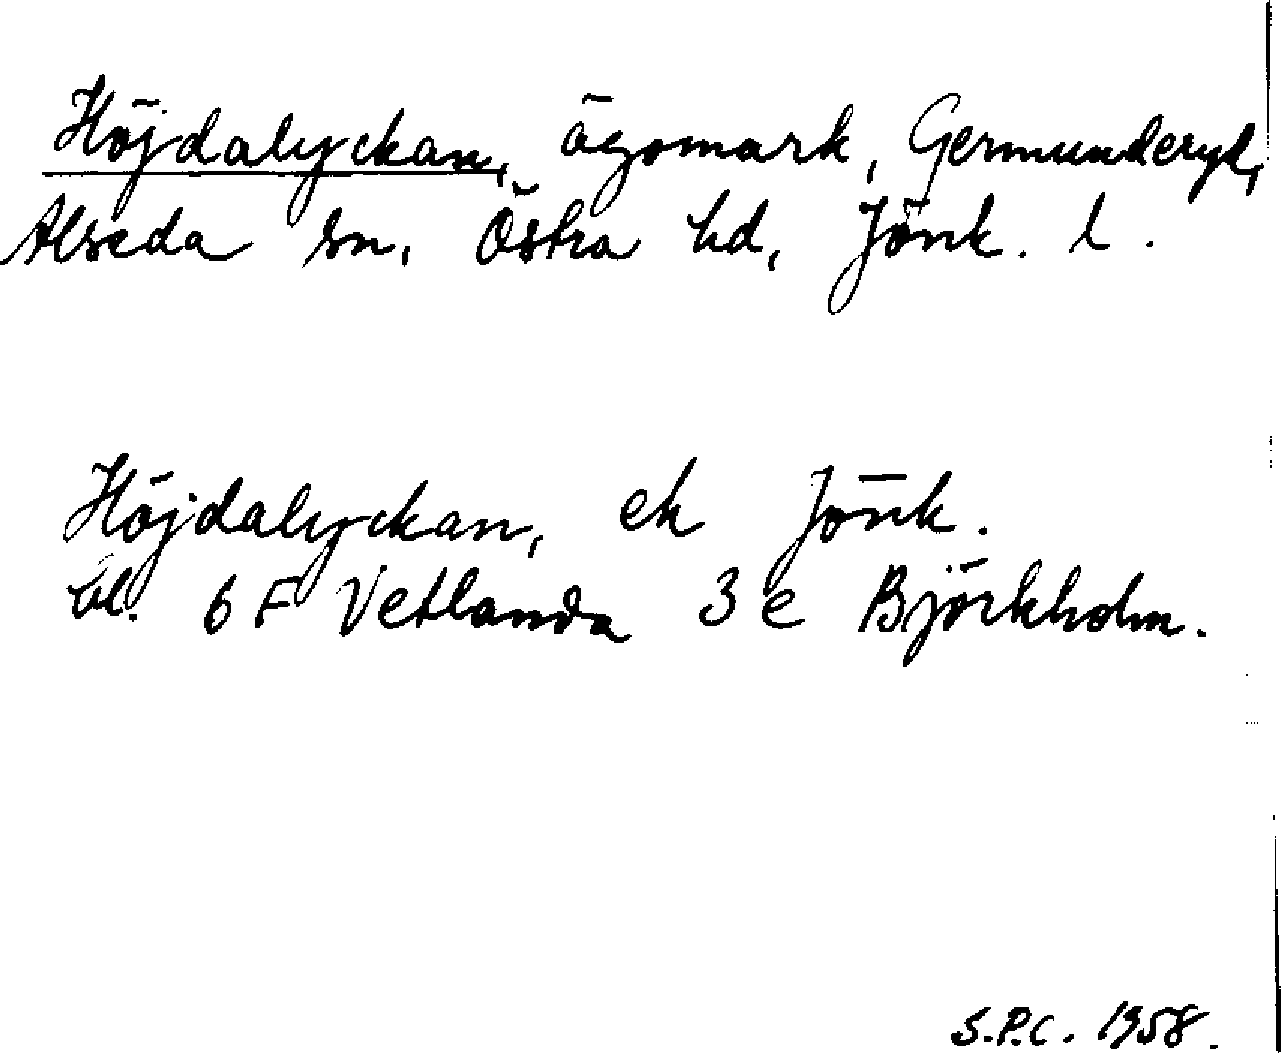 Höjdalyckan, ägomark, Germunderyd,
Alseda sn, Östra hd, Jönk. l.
Höjdalyckan, ek Jönk.
bl. 6 F Vetlanda 3 e Björkholm.
S.P.C. 1958.